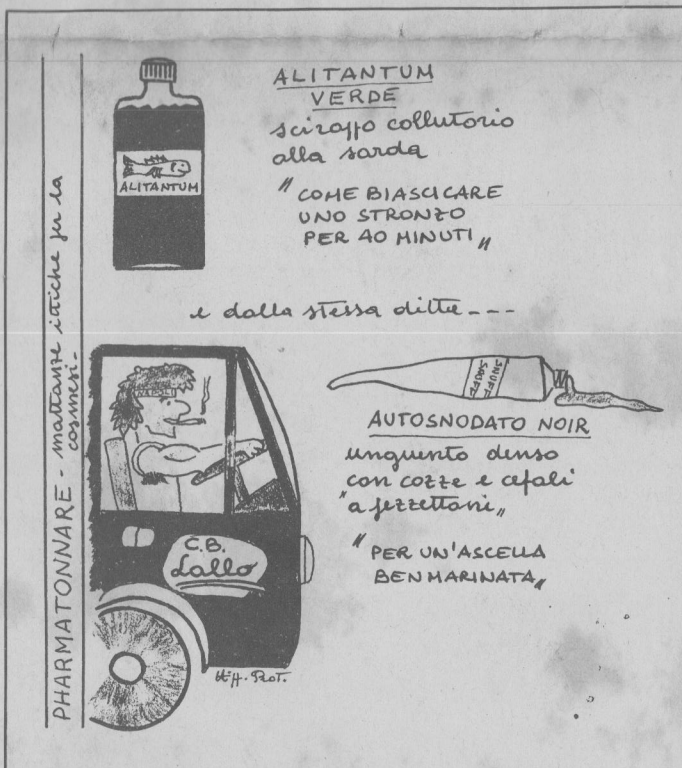 PHARMATONNARE - mattanze ittiche per la
cosmesi -
ALITANTUM
VERDE
sciroppo collutorio
alla sarda
"COME BIASCICARE
UNO STRONZO
PER 40 MINUTI"
ALITANTUM
e dalla stessa ditta ---
SNUFF
SNUFF
AUTOSNODATO NOIR
unguento denso
con cozze e cefali
"a pezzettoni"
"PER UN'ASCELLA
BEN MARINATA"
C.B.
Lallo